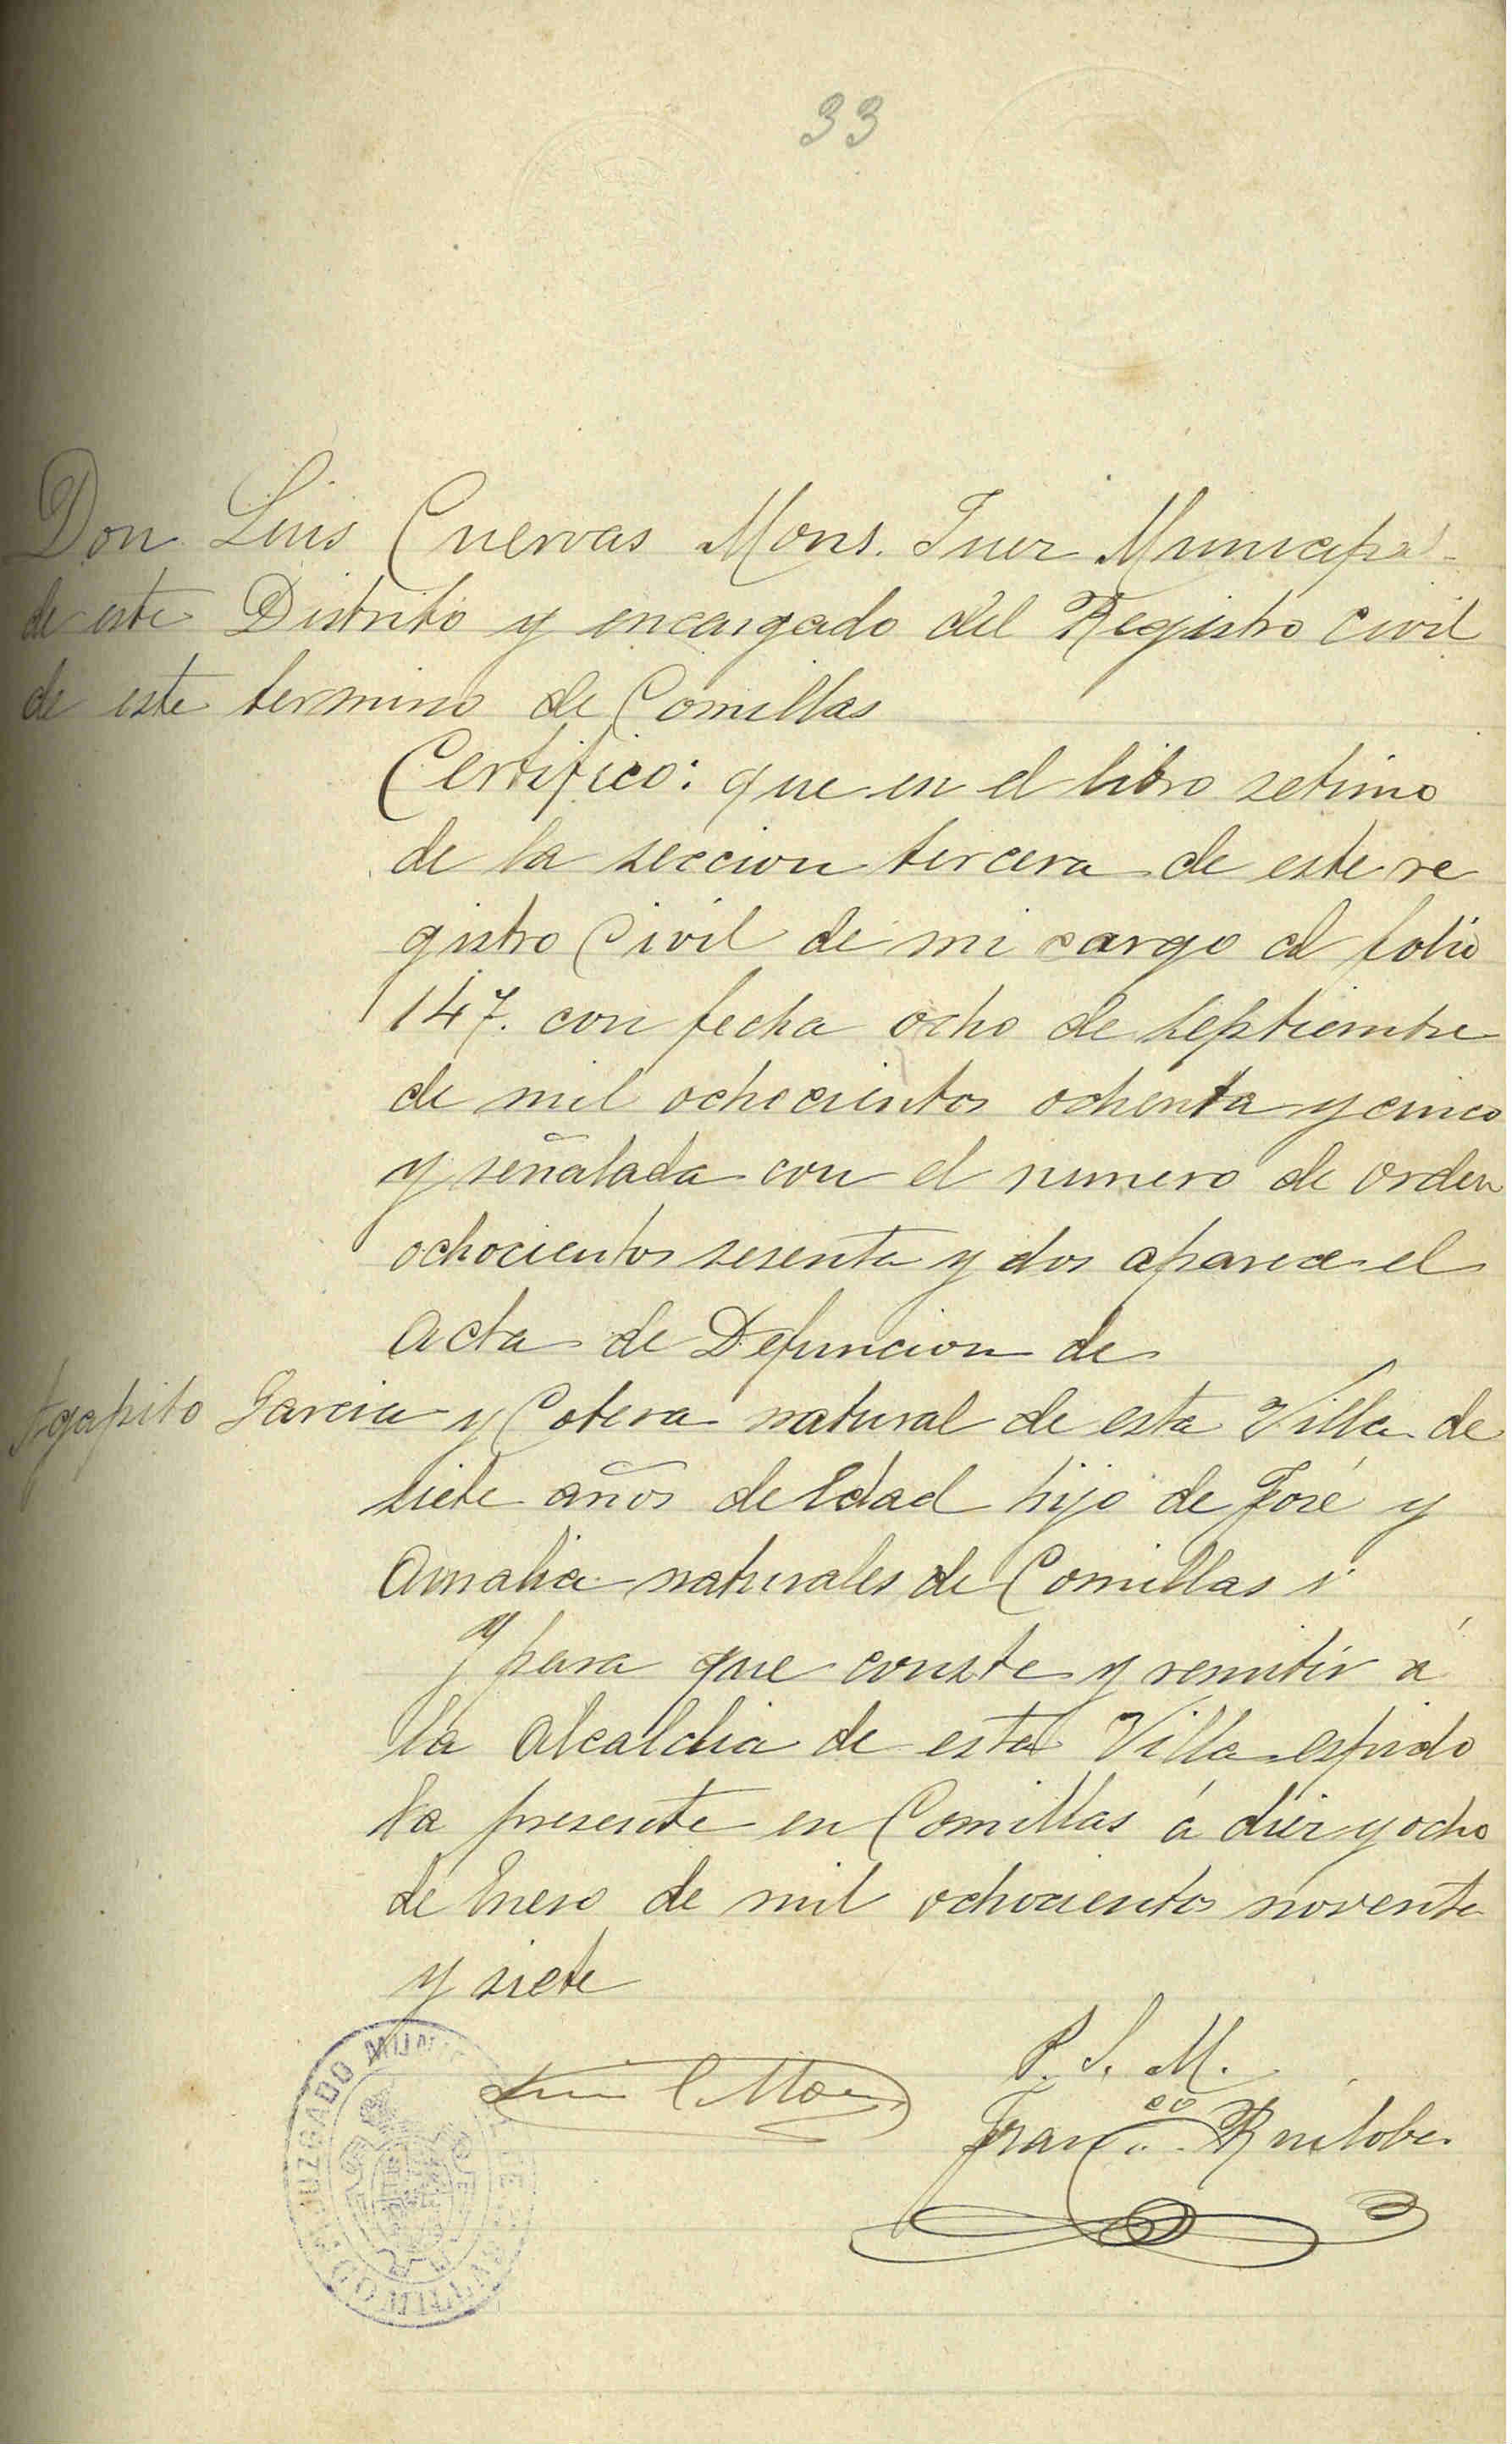 33
Don Luis Cuervas Mons. Juez Municipal
de este Distrito y encargado del Registro civil
de este termino de Comillas
Certifico: que en el libro setimo
de la seccion tercera de este re
gistro Civil de mi cargo al folio
147. con fecha ocho de septiembre
de mil ochocientos ochenta y cinco
y señalada con el numero de orden
ochocientos sesenta y dos aparece el
acta de Defuncion de
Agapito Garcia y Cotera natural de esta Villa de
siete años de Edad hijo de José y
Amalia naturales de Comillas
Y para que conste y remitir á
la Alcaldia de esta Villa espido
la presente en Comillas á diez y ocho
de Enero de mil ochocientos noventa
y siete
P. S. M.
Luis C Mons
Franco Ruiloba
JUZGADO MUNICIPAL DE COMILLAS